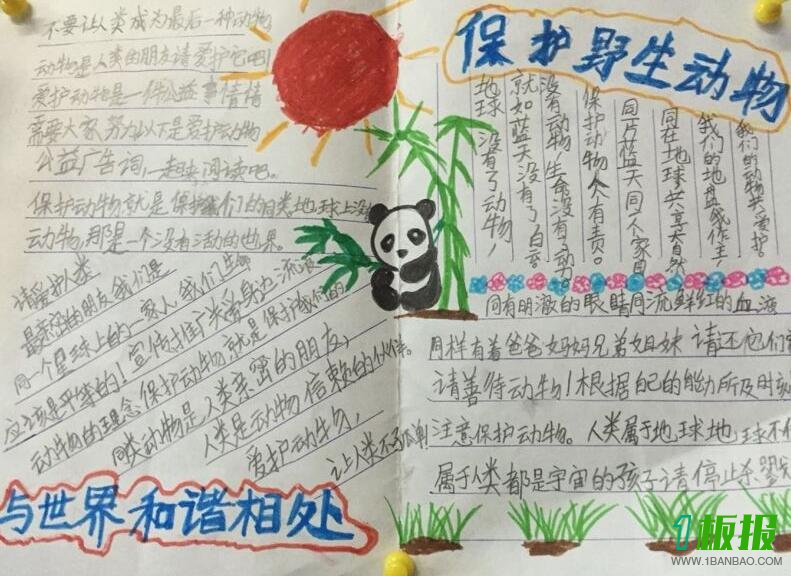 不要让人类成为最后一种动物
动物是人类的朋友请爱护它吧！
爱护动物是一件公益事情
需要大家努力以下是爱护动物
公益广告词，一起来阅读吧。
保护动物就是保护我们的同类。地球上没有
动物，那是一个没有活动的世界。
请爱护人类
最亲密的朋友，我们是
同一个星球上的一家人，我们生命
应该是平等的！宣传推广关爱身边流浪
动物的理念保护动物就是保护我们的
同类动物是人类亲密的朋友，
人类是动物信赖的伙伴。
爱护动物，
让人类不孤单！
与世界和谐相处
保护野生动物
我们的动物共爱护。
我们的地盘我作主
同在地球共享自然
同一片蓝天同一个家园
保护动物人人有责。
没有动物，生命没有了动。
就如蓝天没有了白云
地球没有了动物，
同有明澈的眼睛同流鲜红的血液
同样有着爸爸妈妈兄弟姐妹 请还他们
请善待动物！根据自己的能力所及时刻
注意保护动物。人类属于地球地球不
属于人类都是宇宙的孩子请停止杀
1板报
WWW.1BANBAO.COM